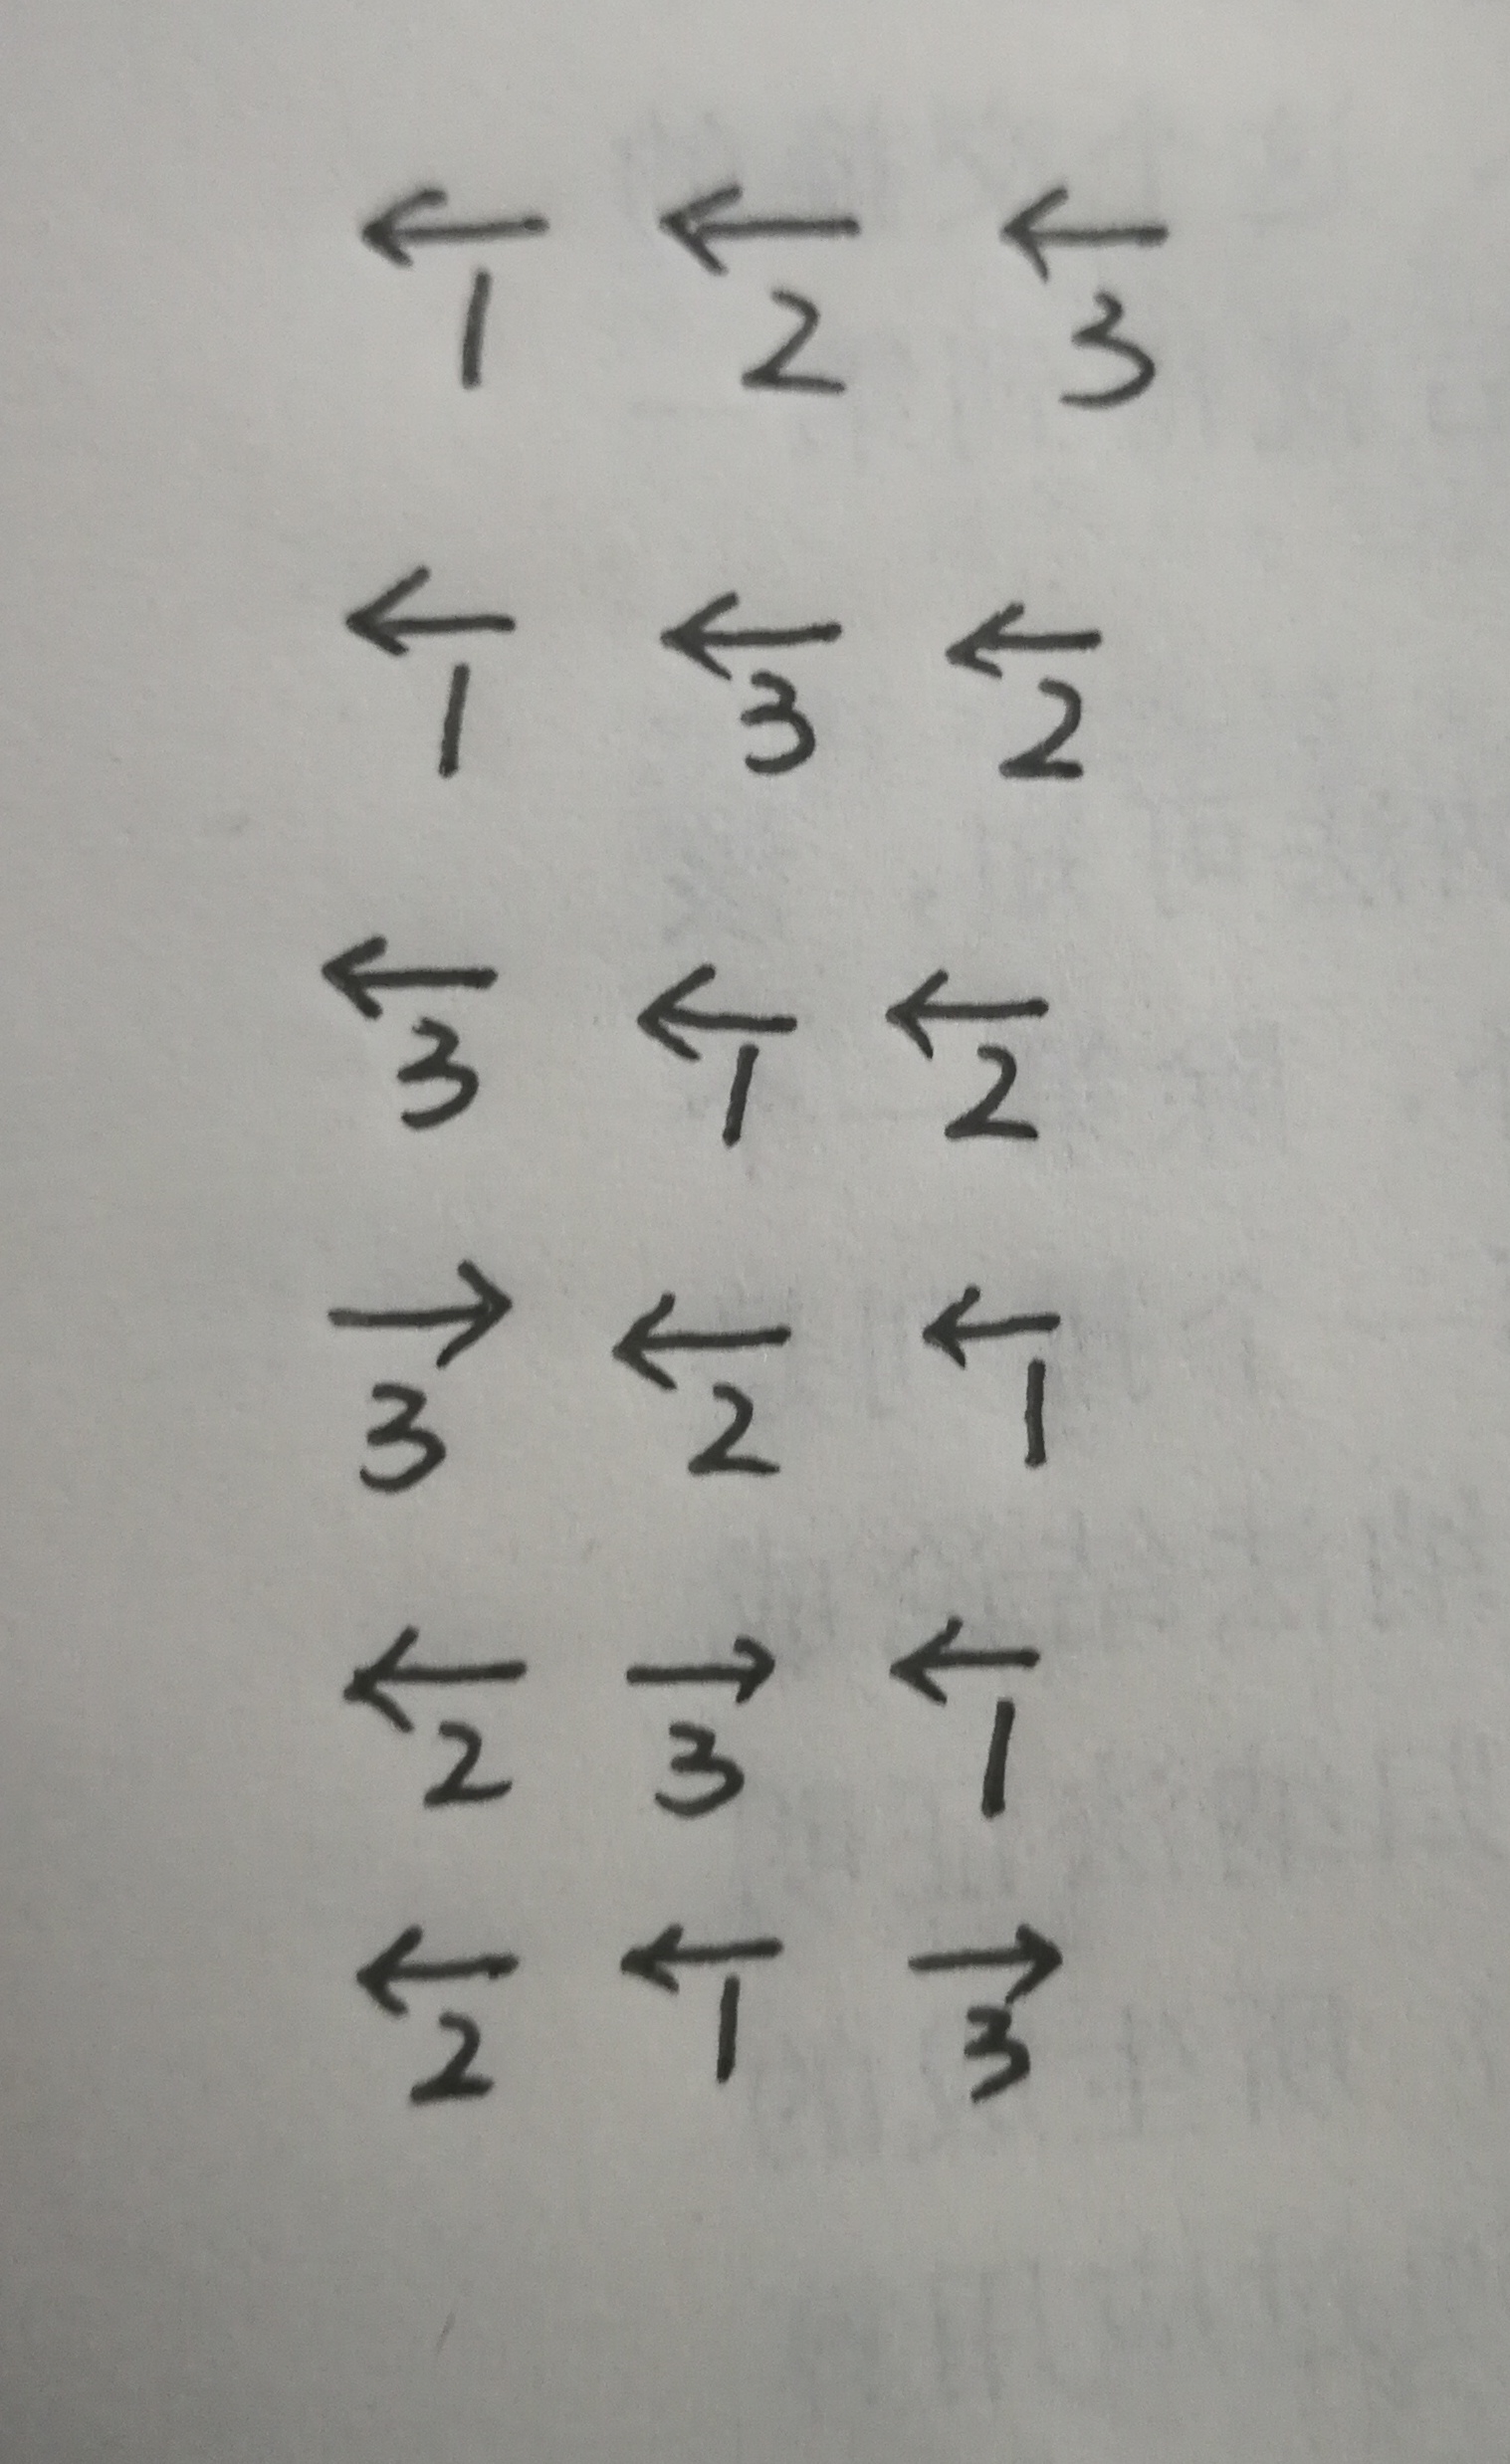 ← ← ←
1 2 3
← ← ←
1 3 2
← ← ←
3 1 2
→ ← ←
3 2 1
← → ←
2 3 1
← ← →
2 1 3